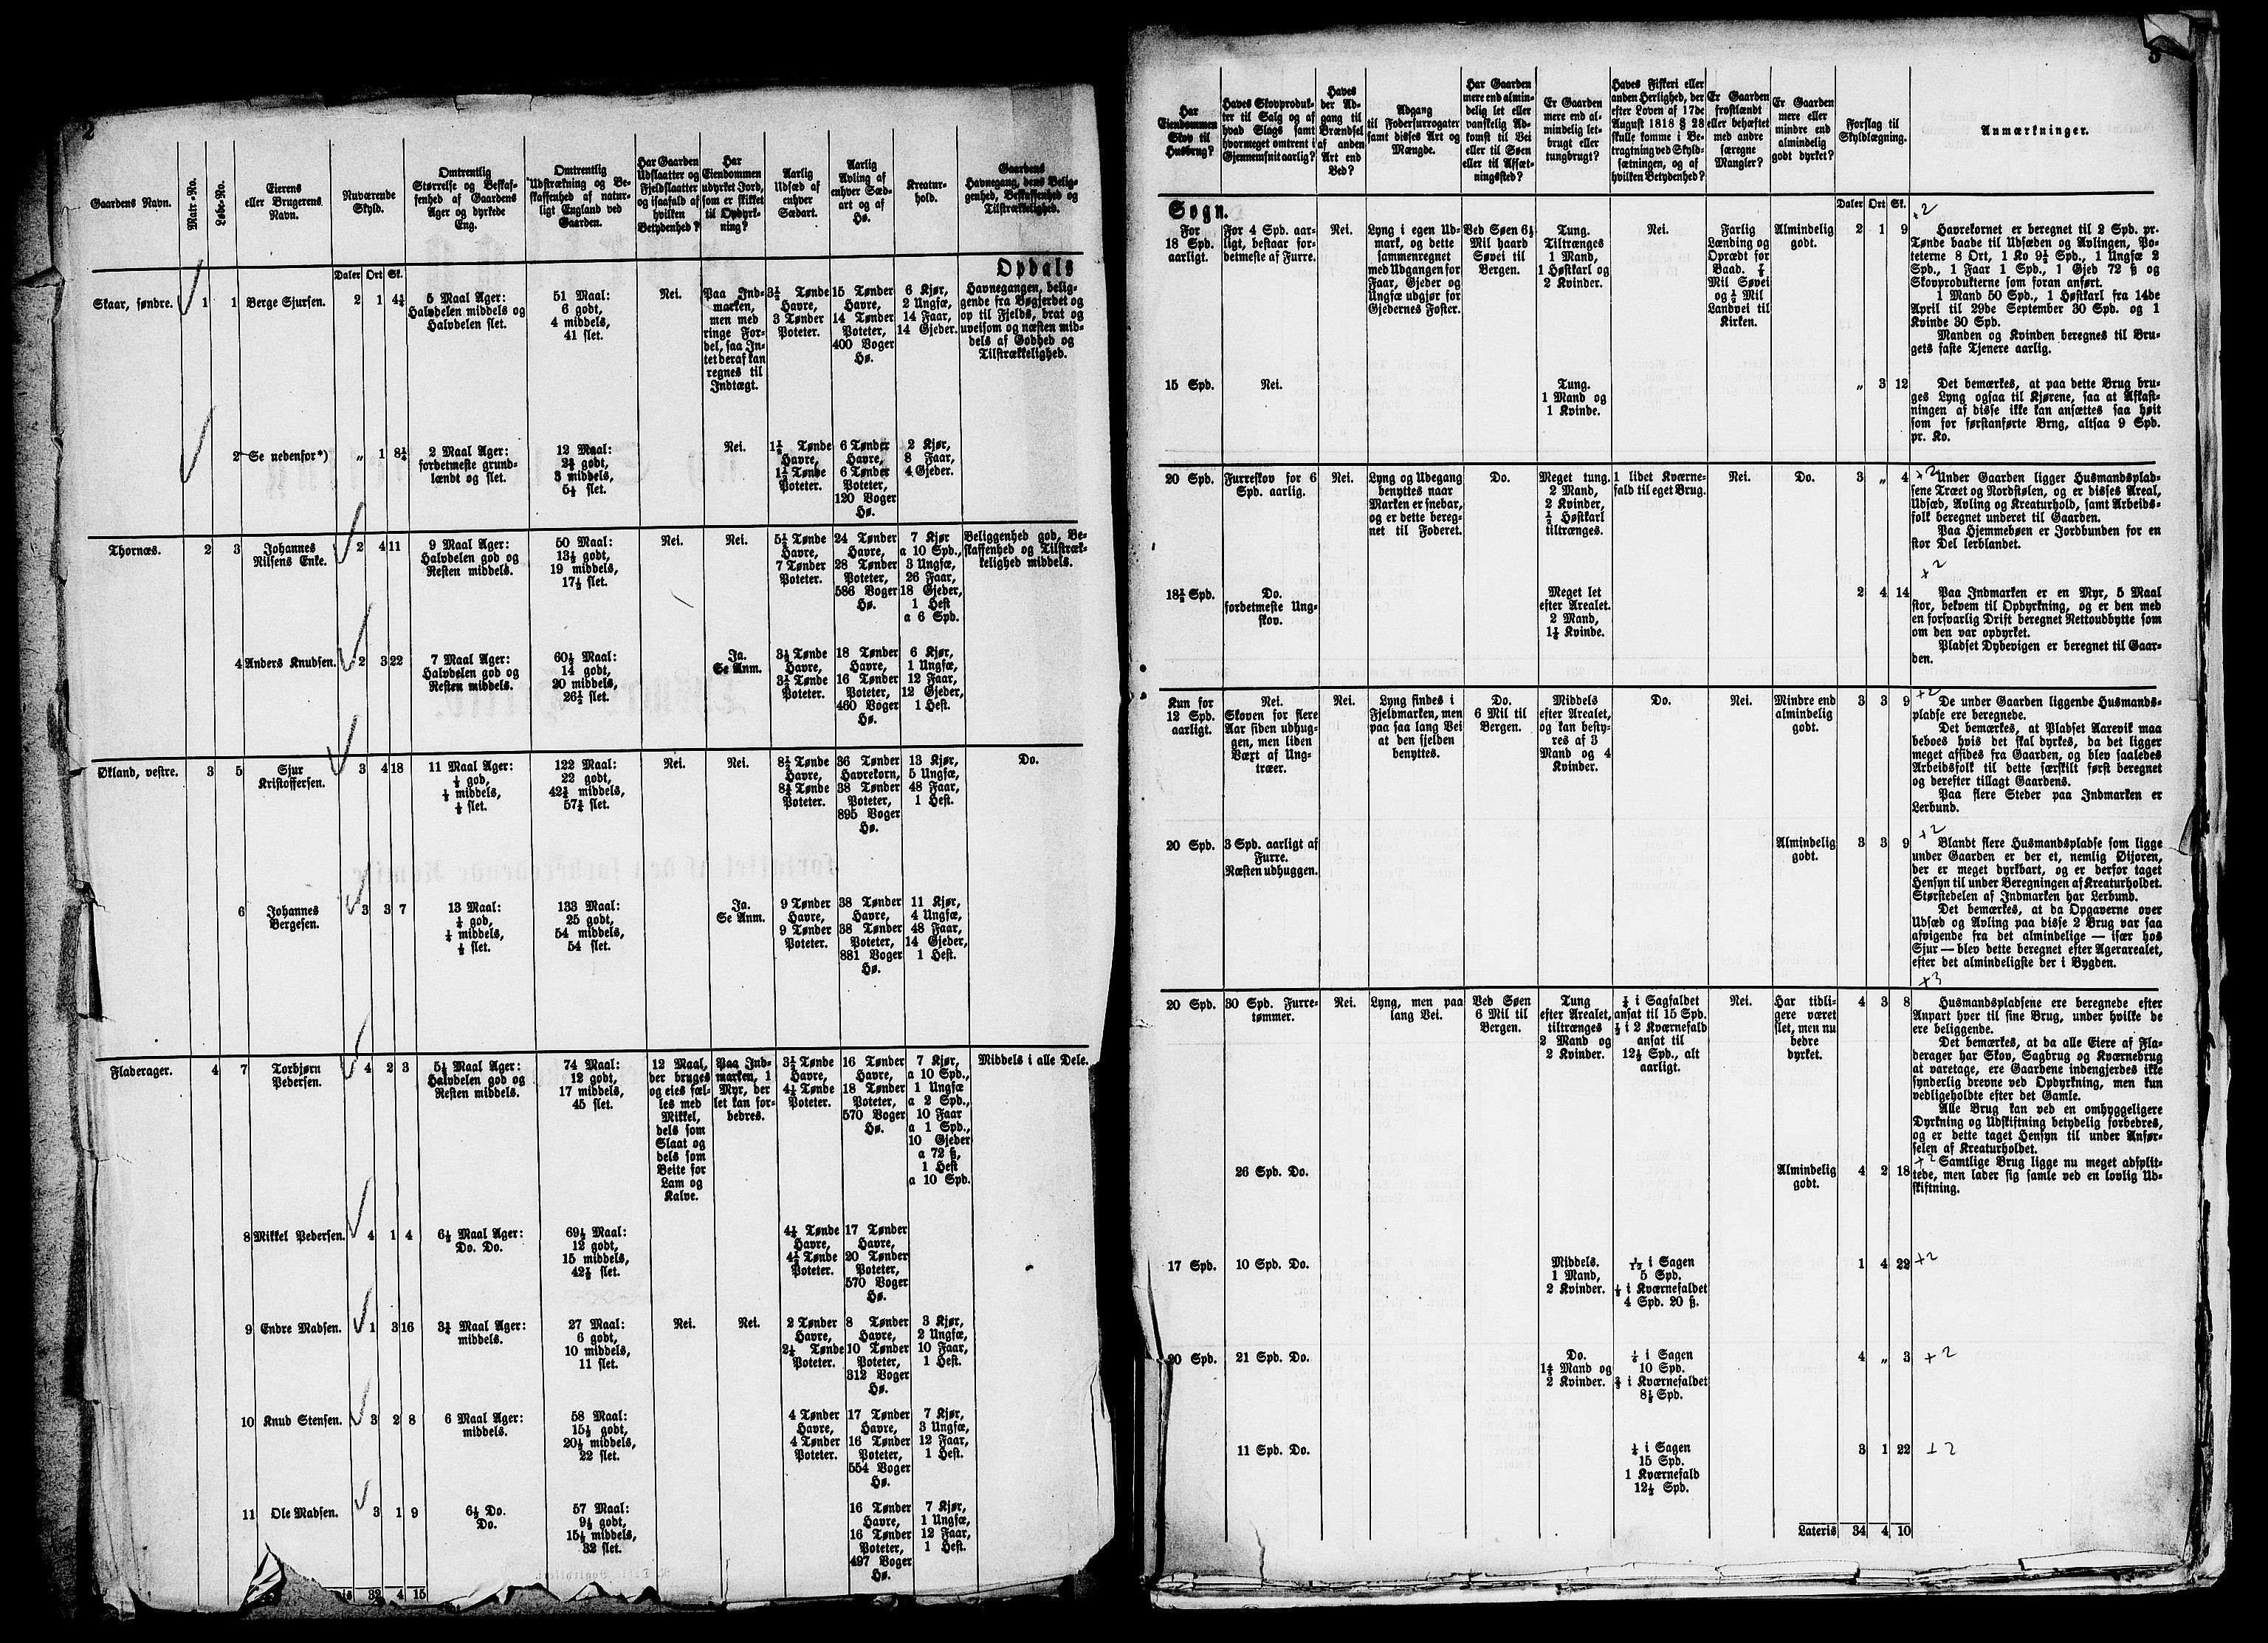 2
Gaardens Navn.
Matr.-No.
Løbe-No.
Eierens
eller Brugerens
Navn.
Nuværende
Skyld.
Omtrentlig
Størrelse og Beskaf-
fenhed af Gaardens
Ager og dyrkede
Eng.
Omtrentlig
Udstrækning og Be-
skaffenhed af natur-
ligt England ved
Gaarden.
Har Gaarden
Udslaatter og
Fjeldslaatter
og isaafald af
hvilken
Betydenhed?
Har
Eiendommen
udyrket Jord,
som er skikket
til Opdyrk-
ning?
Aarlig
Udsæd af
enhver
Sædart.
Aarlig
Avling af
enhver Sæd-
art og af
Hø.
Kreatur-
hold.
Gaardens
Havnegang, dens Belig-
genhed, Beskaffenhed og
Tilstrækkelighed.
Daler Ort Sk.
Opdals
Skaar, søndre.
1
1
Berge Sjursen.
2 1 4¼
5 Maal Ager:
Halvdelen middels og
Halvdelen slet.
51 Maal:
6 godt,
4 middels,
41 slet.
Nei.
Paa Ind-
marken,
men med
ringe For-
del, saa In-
tet deraf kan
regnes til
Indtægt.
3½ Tønde
Havre,
3 Tønder
Poteter.
15 Tønder
Havre,
14 Tønder
Poteter,
400 Voger
Hø.
6 Kjør,
2 Ungfæ,
14 Faar,
14 Gjeder.
Havnegangen, belig-
gende fra Bøgjerdet og
op til Fjelds, brat og
uveisom og næsten mid-
dels af Godhed og
Tilstrækkelighed.
2
Se nedenfor*)
„ 1 8¼
2 Maal Ager:
fordetmeste grund-
lændt og slet.
12 Maal:
godt,
3 middels,
slet.
Nei.
1½ Tønde
Havre,
1½ Tønde
Poteter.
6 Tønder
Havre,
6 Tønder
Poteter,
120 Voger
Hø.
2 Kjør,
8 Faar,
4 Gjeder.
Thornæs.
2
3
Johannes
Nilsens Enke.
2 4 11
9 Maal Ager:
Halvdelen god og
Resten middels.
50 Maal:
13½ godt,
19 middels,
17½ slet.
Nei.
Nei.
5½ Tønde
Havre,
7 Tønder
Poteter.
24 Tønder
Havre,
28 Tønder
Poteter,
586 Voger
Hø.
7 Kjør
a 10 Spd.,
3 Ungfæ,
26 Faar,
18 Gjeder,
1 Hest
a 6 Spd.
Beliggenhed god, Be-
skaffenhed og Tilstræk-
kelighed middels.
4
Anders Knudsen.
2 3 22
7 Maal Ager:
Halvdelen god og
Resten middels.
60½ Maal:
14 godt,
20 middels,
26½ slet.
Ja.
Se Anm.
3½ Tønde
Havre,
3½ Tønde
Poteter.
18 Tønder
Havre,
16 Tønder
Poteter,
460 Voger
Hø.
6 Kjør,
1 Ungfæ,
12 Faar,
12 Gjeder,
1 Hest.
Økland, vestre.
3
5
Sjur
Kristoffersen.
3 4 18
11 Maal Ager:
god,
middels,
slet.
122 Maal:
22 godt,
middels,
slet.
Nei.
Nei.
8½ Tønde
Havre,
8½ Tønde
Poteter.
36 Tønder
Havrekorn,
38 Tønder
Poteter,
895 Voger
Hø.
13 Kjør,
5 Ungfæ,
48 Faar,
1 Hest.
Do.
6
Johannes
Bergesen.
3 3 7
13 Maal:
god,
middels,
slet.
133 Maal:
25 godt,
54 middels,
54 slet.
Ja.
Se Anm.
9 Tønder
Havre,
9 Tønder
Poteter.
38 Tønder
Havre,
38 Tønder
Poteter,
881 Voger
Hø.
11 Kjør,
4 Ungfæ,
48 Faar,
14 Gjeder,
1 Hest.
Fladerager.
4
7
Torbjørn
Pedersen.
4 2 3
5½ Maal Ager:
Halvdelen god og
Resten middels.
74 Maal:
12 godt,
17 middels,
45 slet.
12 Maal,
der bruges
og eies fæl-
les med
Mikkel,
dels som
Slaat og
dels som
Beite for
Lam og
Kalve.
Paa Ind-
marken, 1
Myr, der
let kan for-
bedres.
3½ Tønde
Havre,
4½ Tønde
Poteter.
16 Tønder
Havre,
18 Tønder
Poteter,
570 Voger
Hø.
7 Kjør,
a 10 Spd.,
1 Ungfæ
a 2 Spd.,
10 Faar
a 1 Spd.,
10 Gjeder
a 72 ß,
1 Hest
a 10 Spd.
Middels i alle Dele.
8
Mikkel Pedersen.
4 1 4
6½ Maal Ager:
Do. Do.
69½ Maal:
12 godt,
15 middels,
42½ slet.
4½ Tønde
Havre,
4½ Tønde
Poteter.
17 Tønder
Havre,
20 Tønder
Poteter,
570 Voger
Hø.
9
Endre Madsen.
1 3 16
Maal Ager:
middels.
27 Maal:
6 godt,
10 middels,
11 slet.
Nei.
Nei.
2 Tønder
Havre,
2½ Tønde
Poteter.
8 Tønder
Havre,
10 Tønder
Poteter,
312 Voger
Hø.
3 Kjør,
2 Ungfæ,
10 Faar,
1 Hest.
10
Knud Stensen.
3 2 8
6 Maal Ager:
middels.
58 Maal:
15½ godt,
20½ middels,
22 slet.
4 Tønder
Havre,
4 Tønder
Poteter.
17 Tønder
Havre,
16 Tønder
Poteter,
554 Voger
Hø.
7 Kjør,
3 Ungfæ,
12 Faar,
1 Hest.
11
Ole Madsen.
3 1 9
6½ Do.
Do.
57 Maal:
9½ godt,
15½ middels,
32 slet.
16 Tønder
Havre,
16 Tønder
Poteter,
497 Voger
Hø.
7 Kjør,
1 Ungfæ,
12 Faar,
1 Hest.
32 4 15
3
Har
Eiendommen
Skov til
Husbrug?
Haves Skovproduk-
ter til Salg og af
hvad Slags samt
hvormeget omtrent i
Gjennemsnit aarlig?
Haves
der Ad-
gang til
Brændsel
af anden
Art end
Ved?
Adgang
til Fodersurrogater
samt disses Art og
Mængde.
Har Gaarden
mere end almin-
delig let eller
vanskelig Ad-
komst til Vei
eller til Søen
eller til Afsæt-
ningssted?
Er Gaarden
mere end al-
mindelig let-
brugt eller
tungbrugt?
Haves Fiskeri eller
anden Herlighed, der
efter Loven af 17de
August 1818 § 28
skulle komme i Be-
tragtning ved Skyld-
sætningen, og af
hvilken Betydenhed?
Er Gaarden
frostlændt
eller behæftet
med andre
særegne
Mangler?
Er Gaarden
mere eller
mindre end
almindelig
godt dyrket?
Forslag til
Skyldlægning.
Anmærkninger.
Daler Ort Sk.
Sogn.
For
18 Spd.
aarligt.
For 4 Spd. aar-
ligt, bestaar for-
detmeste af Furre.
Nei.
Lyng i egen Ud-
mark, og dette
sammenregnet
med Udgangen for
Faar, Gjeder og
Ungfæ udgjør for
Gjedernes Foster.
Ved Søen 6½
Mil haard
Søvei til
Bergen.
Tung.
Tiltrænges
1 Mand,
1 Høstkarl og
2 Kvinder.
Nei.
Farlig
Lænding og
Oprædt for
Baad.
Mil Søvei
og ½ Mil
Landvei til
Kirken.
Almindelig
godt.
2 1 9
+2
Havrekornet er beregnet til 2 Spd. pr.
Tønde baade til Udsæden og Avlingen, Po-
teterne 8 Ort, 1 Ko 9½ Spd., 1 Ungfæ 2
Spd., 1 Faar 1 Spd., 1 Gjed 72 ß og
Skovprodukterne som foran anført.
1 Mand 50 Spd., 1 Høstkarl fra 14de
April til 29de September 30 Spd. og 1
Kvinde 30 Spd.
Manden og Kvinden beregnes til Bru-
gets faste Tjenere aarlig.
15 Spd.
Nei.
Tung.
1 Mand og
1 Kvinde.
„ 3 12
Det bemærkes, at paa dette Brug bru-
ges Lyng ogsaa til Kjørene, saa at Afkast-
ningen af disse ikke kan ansættes saa høit
som for førstanførte Brug, altsaa 9 Spd.
pr. Ko.
20 Spd.
Furreskov for 6
Spd. aarlig.
Nei.
Lyng og Udegang
benyttes naar
Marken er snebar,
og er dette bereg-
net til Foderet.
Do.
Meget tung.
2 Mand,
2 Kvinder,
½ Høstkarl
tiltrænges.
1 lidet Kværne-
fald til eget Brug.
Nei.
Do.
3 „ 4
+2
Under Gaarden ligger Husmandsplad-
sene Træet og Nordstølen, og er disses Areal,
Udsæd, Avling og Kreaturhold, samt Arbeids-
folk beregnet underet til Gaarden.
Paa Hjemmebøen er Jordbunden for en
stor Del lerblandet.
18½ Spd.
Do.
fordetmeste Ung-
skov.
Meget let
efter Arealet.
2 Mand,
1½ Kvinde.
2 4 14
+2
Paa Indmarken er en Myr, 5 Maal
stor, bekvem til Opdyrkning, og er den med
en forsvarlig Drift beregnet Nettoudbytte som
om den var opdyrket.
Pladset Dybevigen er beregnet til Gaar-
den.
Kun for
12 Spd.
aarligt.
Nei.
Skoven for flere
Aar siden udhug-
gen, men liden
Vært af Ung-
træer.
Nei.
Lyng findes i
Fjeldmarken, men
paa saa lang Vei
at den sjelden
benyttes.
Do.
6 Mil til
Bergen.
Middels
efter Arealet,
og kan besty-
res af 3
Mand og 4
Kvinder.
Do.
Nei.
Mindre end
almindelig
godt.
3 3 9
+2
De under Gaarden liggende Husmands-
pladse ere beregnede.
Det bemærkes, at Pladset Aarevik maa
beboes hvis det skal dyrkes, da det ligger
meget affides fra Gaarden, og blev saaledes
Arbeidsfolk til dette særskilt først beregnet
og derefter tillagt Gaardens.
Paa flere Steder paa Indmarken er
Lerbund.
20 Spd.
3 Spd. aarligt af
Furre.
Næsten udhuggen.
Almindelig
godt.
3 3 9
+2
Blandt flere Husmandspladse som ligge
under Gaarden er der et, nemlig Øijoren,
der er meget dyrkbart, og er derfor taget
Hensyn til under Beregningen af Kreaturholdet.
Størstedelen af Indmarken har Lerbund.
Det bemærkes, at da Opgaverne over
Udsæd og Avling paa disse 2 Brug var saa
afvigende fra det almindelige — især hos
Sjur — blev dette beregnet efter Agerarealet,
efter det almindeligste der i Bygden.
20 Spd.
30 Spd. Furre-
tømmer.
Nei.
Lyng, men paa
lang Vei.
Ved Søen
6 Mil til
Bergen.
Tung
efter Arealet,
tiltrænges
2 Mand og
2 Kvinder.
i Sagfaldet
ansat til 15 Spd.
i 2 Kværnefald
ansat til
12½ Spd., alt
aarligt.
Nei.
Har tidli-
gere været
slet, men nu
bedre
dyrket.
4 3 8
+3
Husmandspladsene ere beregnede efter
Anpart hver til sine Brug, under hvilke de
ere beliggende.
Det bemærkes, at da alle Eiere af Fla-
derager har Skov, Sagbrug og Kværnebrug
at varetage, ere Gaardene indengjerdes ikke
synderlig drevne ved Opdyrkning, men kun
vedligeholdte efter det Gamle.
Alle Brug kan ved en omhyggeligere
Dyrkning og Udskiftning betydelig forbedres,
og er dette taget Hensyn til under Anfør-
selen af Kreaturholdet.
Samtlige Brug ligge nu meget adsplit-
tede, men lader sig samle ved en lovlig Ud-
skiftning.
26 Spd. Do.
Almindelig
godt.
4 2 18
+2
17 Spd.
10 Spd. Do.
Middels.
1 Mand,
2 Kvinder.
i Sagen
5 Spd.
i Kværnefaldet
4 Spd. 20 ß.
1 4 22
+2
20 Spd.
21 Spd. Do.
Do.
Mand og
2 Kvinder.
i Sagen
10 Spd.
i Kværnefaldet
Spd.
4 „ 3
+2
11 Spd. Do.
i Sagen
15 Spd.
1 Kværnefald
12½ Spd.
3 1 22
+2
Lateris 34 4 10